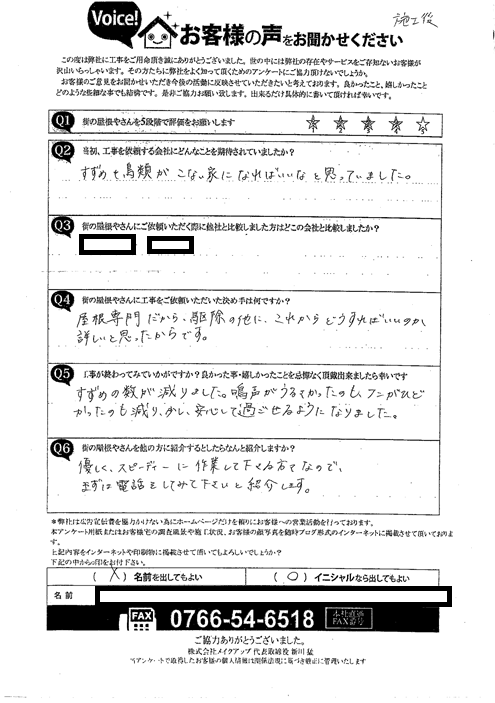 Voice!
お客様の声をお聞かせください
施工後
この度は弊社に工事をご用命頂き誠にありがとうございました。世の中には弊社の存在やサービスをご存知ないお客様が
沢山いらっしゃいます。その方たちに弊社をよく知って頂くためのアンケートにご協力頂けないでしょうか。
お客様のご意見をお聞かせいただき今後の活動に反映させていただきたいと考えております。良かったこと、嬉しかったこと
どのような些細な事でも結構です。是非ご協力お願い致します。出来るだけ具体的に書いて頂ければ幸いです。
Q1 街の屋根やさんを5段階で評価をお願いします ☆ ☆ ☆ ☆ ☆
Q2 当初、工事を依頼する会社にどんなことを期待されていましたか?
すずめや鳥類がこない家になればいいなと思っていました。
Q3 街の屋根やさんにご依頼いただく際に他社と比較しました方はどこの会社と比較しましたか?
Q4 街の屋根やさんに工事をご依頼いただいた決め手は何ですか?
屋根専門だから、駆除の他に、これからどうすればいいのか、
詳しいと思ったからです。
Q5 工事が終わってみていかがですか?良かった事・嬉しかったことを忌憚なく頂戴出来ましたら幸いです
すずめの数が減りました。鳴声がうるさかったのも、フンがひど
かったのも減り、少し、安心して過ごせるようになりました。
Q6 街の屋根やさんを他の方に紹介するとしたらなんと紹介しますか?
優しく、スピーディーに作業して下さる方々なので、
まずは電話をしてみて下さいと紹介します。
*弊社は広告宣伝費を極力かけない為にホームページだけを頼りにお客様への営業活動を行っております。
本アンケート用紙またはお客様宅の調査風景や施工状況、お客様の顔写真を随時ブログ形式のインターネットに掲載させて頂いておりま
す。
上記内容をインターネットや印刷物に掲載させて頂いてもよろしいでしょうか?
下記の中から○印をお付け下さい。
( X ) 名前を出してもよい ( ○ ) イニシャルなら出してもよい
名前
FAX 0766-54-6518 本社直通 FAX番号
ご協力ありがとうございました。
株式会社メイクアップ 代表取締役 新川 猛
当アンケートで取得したお客様の個人情報は関係法規に基づき厳正に管理いたします